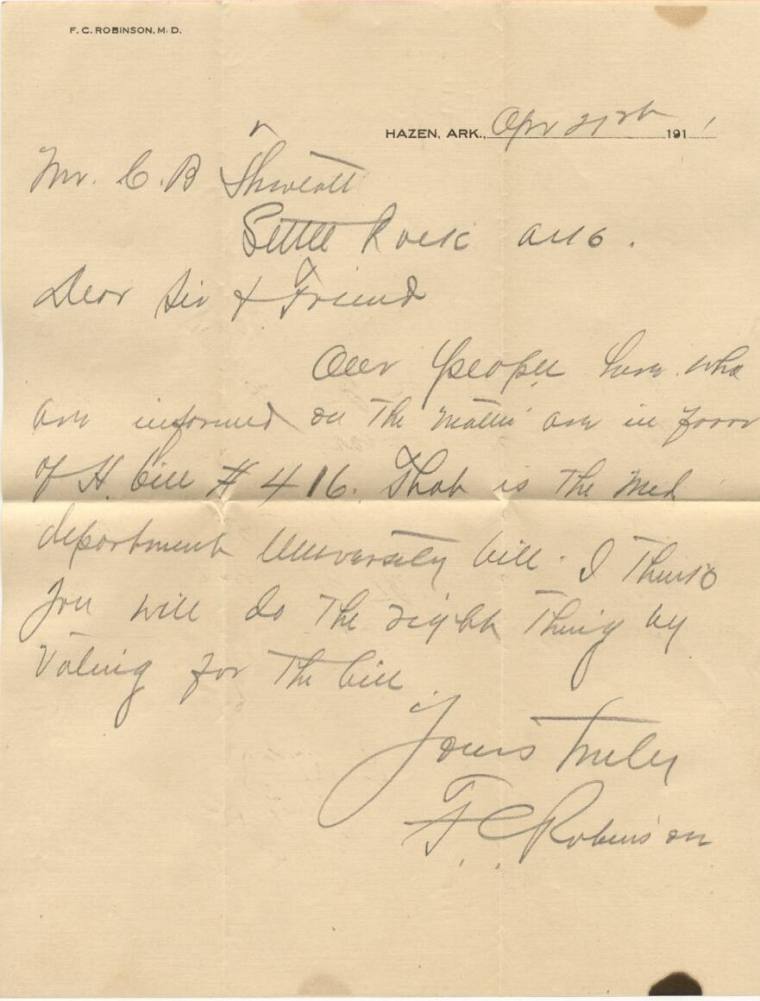 F. C. ROBINSON, M. D.
HAZEN, ARK., Apr 21st 1911
Mr. C. B
Little Rock Ark.
Dear Sir & Friend
Our people here who
are informed on the matter are in favor
of H. bill # 416. That is the Med
department University bill. I think
you will do the right thing by
Voting for the bill
Yours truly
F. C. Robinson